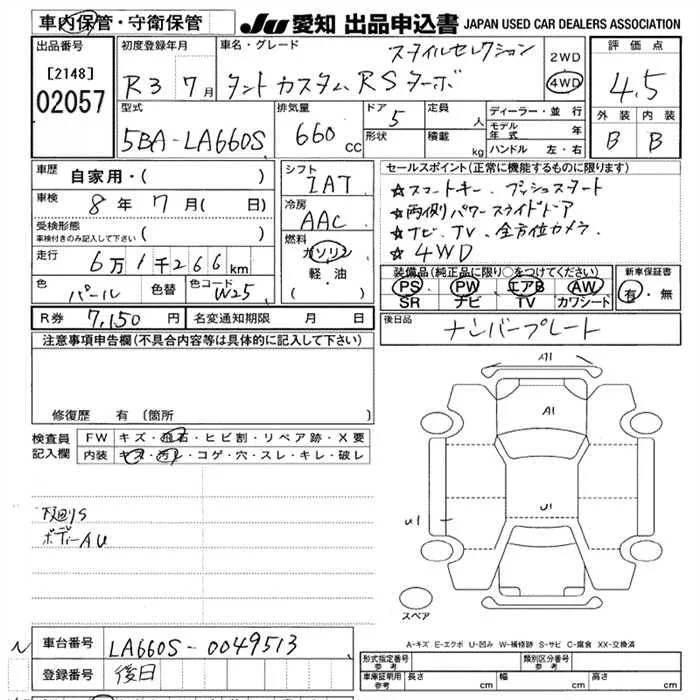 車内保管・守衛保管
JU 愛知 出品申込書 JAPAN USED CAR DEALERS ASSOCIATION
出品番号 初度登録年月 車名・グレード スタイルセレクション 2WD 評価点
[2148] R3 7月 タントカスタム RSターボ 4WD 4.5
02057
型式 排気量 ドア 5 定員 人 ディーラー・並行 外装 内装
5BA-LA660S 660 CC 形状 積載 kg モデル年式 年 B B
ハンドル 左・右
車歴 自家用・( ) シフト IAT セールスポイント(正常に機能するものに限ります)
車検 8年 7月( 日) 冷房 AAC ☆スマートキー、プッシュスタート
受検形態 ( ) ☆両側パワースライドドア
車検付きのみ記入して下さい 燃料 ☆ナビ、TV、全方位カメラ
走行 6万1千266km ガソリン ☆4WD
色 パール 色替 色コード W25 軽油 ( )
装備品(純正品に限り○をつけてください) 新車保証書
PS PW エアB AW 有・無
SR ナビ TV カワシート
R券 7,150円 名変通知期限 月 日 後日品 ナンバープレート
注意事項申告欄(不具合内容等は具体的に記入して下さい)
修復歴 有〔箇所
検査員記入欄 FW キズ・飛石・ヒビ割・リペア跡・X要
内装 キズ・汚レ・コゲ・穴・スレ・キレ・破レ
A1
A1
U1
U1
下廻りS
ボディーAU
スペア
A-キズ E-エクボ U-凹み W-補修跡 S-サビ C-腐食 XX-交換済
N 車台番号 LA660S-0049513
登録番号 後日
形式指定番号 参考 類別区分番号 参考
車庫証明用 参考 長さ cm 幅 cm 高さ cm